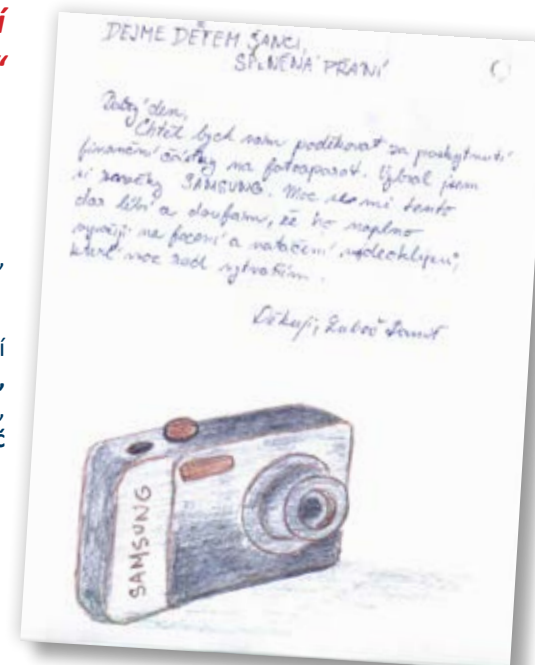 DEJME DĚTEM ŠANCI,
SPLNĚNÁ PŘÁNÍ
Dobrý den,
Chtěl bych vám poděkovat za poskytnutí
finanční částky na fotoaparát. Vybral jsem
si značky SAMSUNG. Moc se mi tento
dar líbí a doufám, že ho naplno
využiji na focení a natáčení videoklipů,
které moc rád vytvářím.
Děkuji, Luboš
SAMSUNG